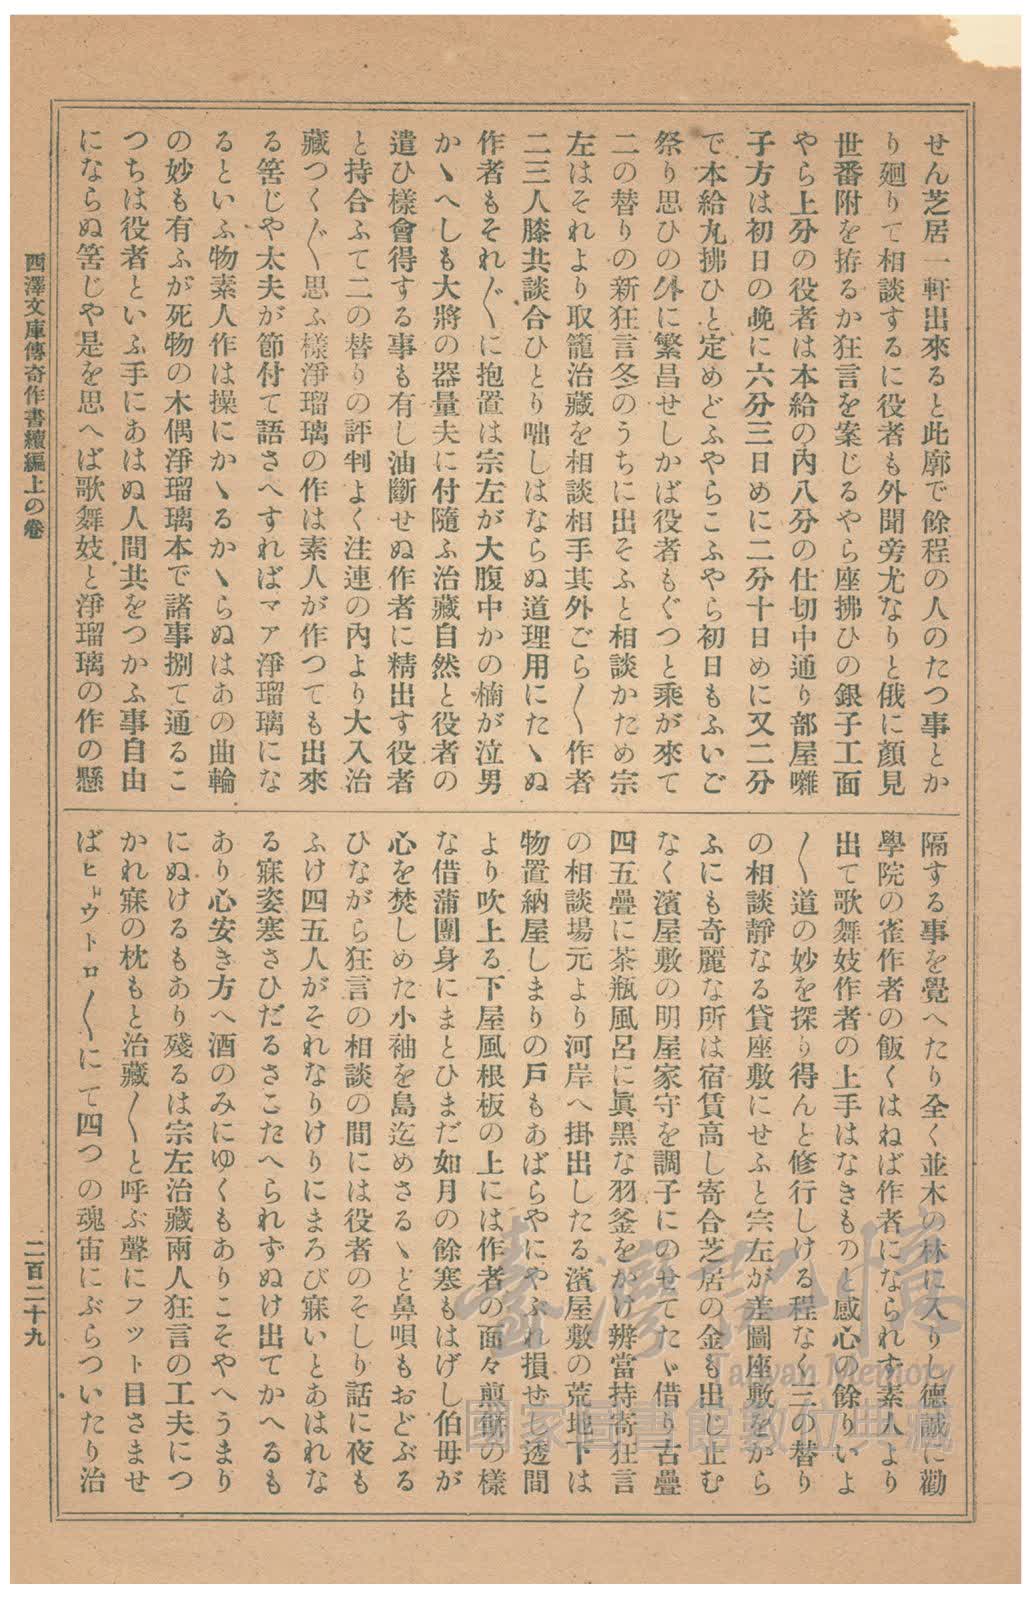 せん芝居一軒出來ると此廓で餘程の人のたつ事とか
り廻りて相談するに役者も外聞旁尤なりと俄に顔見
世番附を拵るか狂言を案じるやら座拂ひの銀子工面
やら上分の役者は本給の內八分の仕切中通り部屋囃
子方は初日の晚に六分三日めに二分十日めに又二分
で本給丸拂ひと定めどふやらこふやら初日もふいご
祭り思ひの外に繁昌せしかば役者もぐつと乘が來て
二の替りの新狂言冬のうちに出そふと相談かため宗
左はそれより取籠治藏を相談相手其外ごら〱作者
二三人膝共談合ひとり咄しはならぬ道理用にたゝぬ
作者もそれ〲に抱置は宗左が大腹中かの楠が泣男
かゝへしも大將の器量夫に付隨ふ治藏自然と役者の
遣ひ樣會得する事も有し油斷せぬ作者に精出す役者
と持合ふて二の替りの評判よく注連の內より大入治
藏つく〲思ふ樣淨瑠璃の作は素人が作つても出來
る筈じや太夫が節付て語さへすればマア淨瑠璃にな
るといふ物素人作は操にかゝるかゝらぬはあの曲輪
の妙も有ふが死物の木偶淨瑠璃本で諸事捌て通るこ
つちは役者といふ手にあはぬ人間共をつかふ事自由
にならぬ筈じや是を思へば歌舞妓と淨瑠璃の作の懸
隔する事を覺へたり全く並木の林に入りし德誠に勸
學院の雀作者の飯くはねば作者になられず素人より
出て歌舞妓作者の上手はなきものと感心の餘りいよ
〱道の妙を探り得んと修行しける程なく三の替り
の相談靜なる貸座敷にせふと宗左が差圖座敷をから
ふにも奇麗な所は宿賃高し寄合芝居の金も出し止む
なく濱屋敷の明屋家守を調子にのせてたゞ借り古疊
四五疊に茶瓶風呂に眞黑な羽釜をかけ辨當持寄狂言
の相談場元より河岸へ掛出したる濱屋敷の荒地下は
物置納屋しまりの戸もあばらやにやふれ損せし透間
より吹上る下屋風根板の上には作者の面々煎餅の樣
な借蒲團身にまとひまだ如月の餘寒もはげし伯母が
心を焚しめた小袖を島迄めさるゝと鼻唄もおどぶる
ひながら狂言の相談の間には役者のそしり話に夜も
ふけ四五人がそれなりけりにまろび寐いとあはれな
る寐姿寒さひだるさこたへられずぬけ出てかへるも
あり心安き方へ酒のみにゆくもありこそやへうまり
にぬけるもあり殘るは宗左治藏兩人狂言の工夫につ
かれ寐の枕もと治藏〱と呼ぶ聲にフット目さませ
ばヒョウトロ〱にて四つの魂宙にぶらついたり治
西澤文庫傳奇作書續編上の卷
二百二十九
臺灣記憶
Taiwan Memory
國家圖書館數位典藏